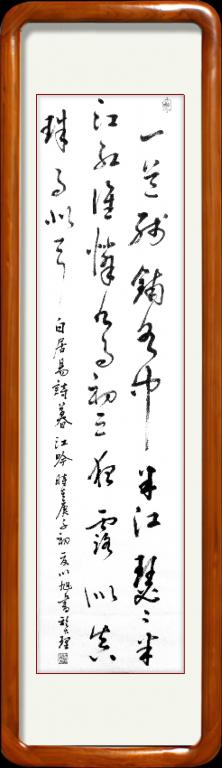 一道残鋪水中半江瑟〻半
江红谁怜九月初三夜露似真
珠月似弓
白居易詩暮江吟時庚子初夏旭書於理